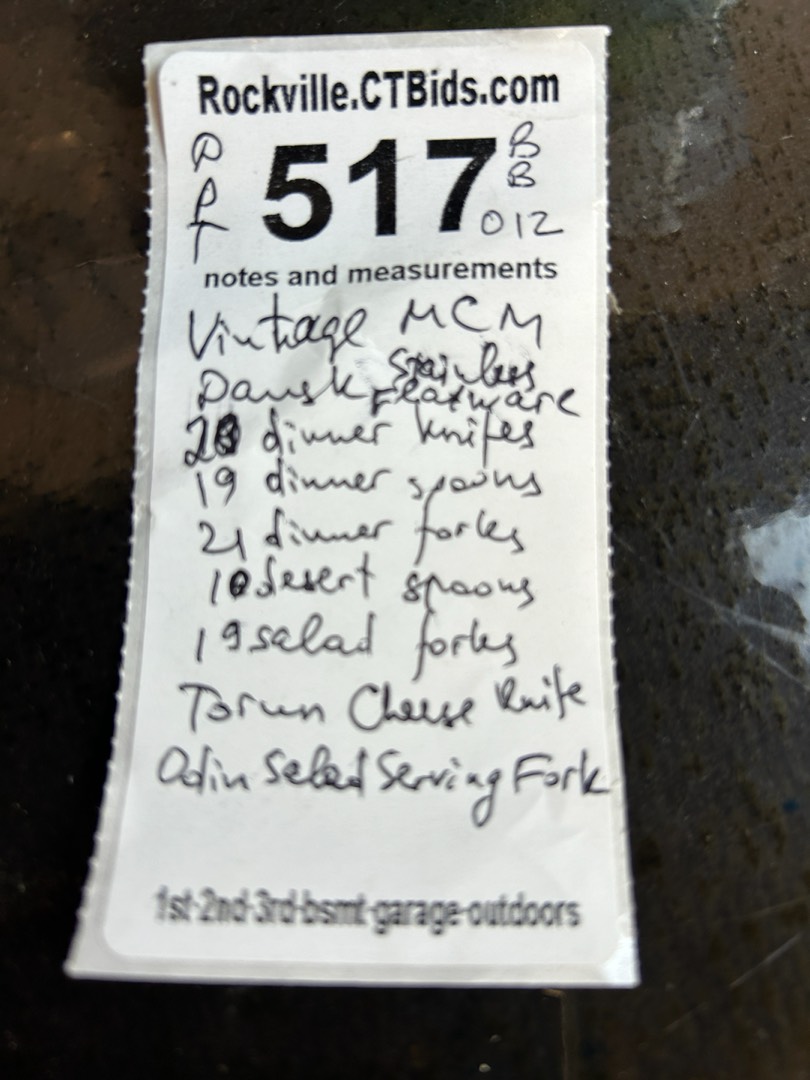 Rockville.CTBids.com
517
B
B
012
notes and measurements
Vintage MCM
Dansk Stainless
Flatware
20 dinner knifes
19 dinner spoons
21 dinner forks
10 desert spoons
19 salad forks
Torun Cheese Knife
Odin Salad Serving Fork
1st-2nd-3rd-bsmt-garage-outdoors